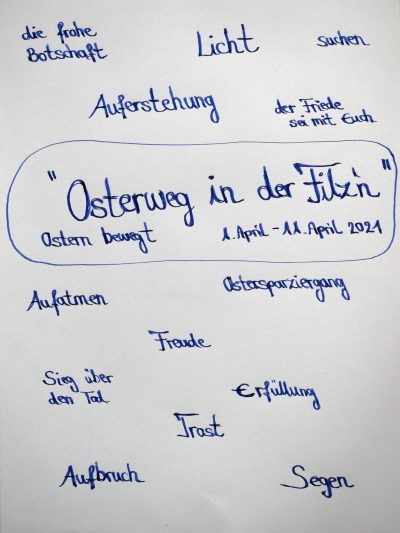 die frohe
Botschaft
Licht
suchen
Auferstehung
der Friede
sei mit Euch
"Osterweg in der Filz'n"
Ostern bewegt
1. April - 11. April 2021
Aufatmen
Osterspaziergang
Freude
Sieg über
den Tod
Erfüllung
Trost
Aufbruch
Segen